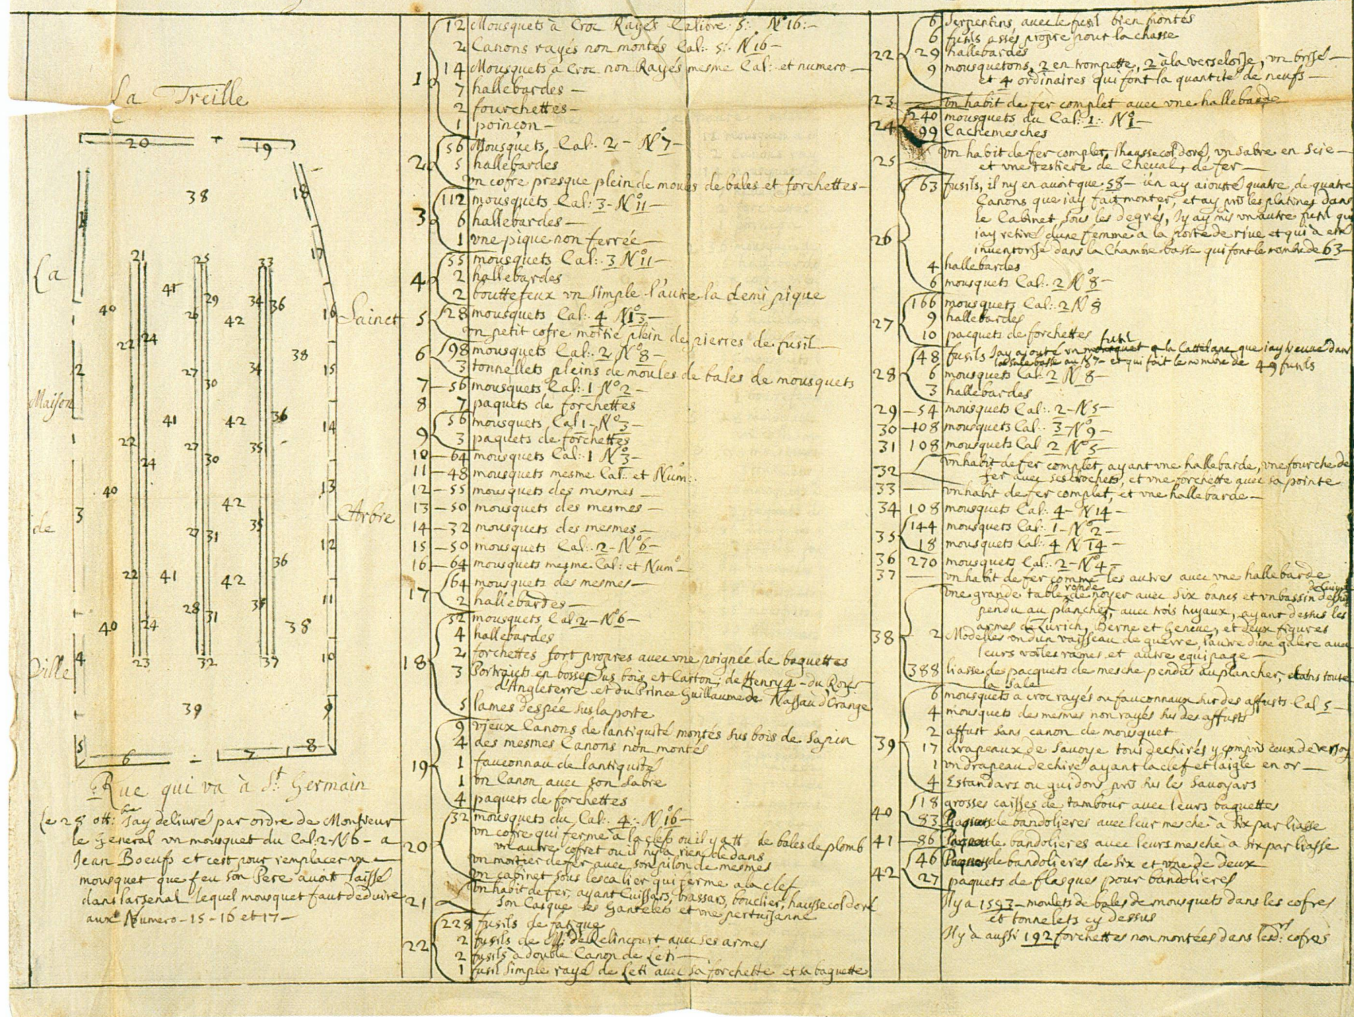 La Treille
20 19
38 18
1
La
21 25 33 17
41 29 34 36
40 26 42 16 Sainct
22 24 38
2 27 34 15
30
Maison
41 42 36 14
22 27 35
24 30
40 13
42
3 35 Arbre
de 27 31 12
36
22 41 42
28 35 11
40 24 31 38
4 23 32 37 10
Ville
39 9
5 6 7 8
Rue qui va à St Germain
Le 28 oct: J'ay delivré par ordre de Monsieur
le General un mousquet du Cal: 2 - N 6 - a
Jean Boeufs et c'est pour remplacer un
mousquet que feu son Pere avoit laissé
dans larsenal lequel mousquet faut deduire
aux Numero - 15 - 16 et 17 -
1 12 Mousquets à Croc Rayés Calibre 5: No 16: -
2 Canons rayés non montés Cal: 5: No 16 -
14 Mousquets à Croc non Rayés mesme Cal: et numero -
7 hallebardes -
2 fourchettes -
1 poinçon -
2 56 Mousquets, Cal: 2 - No 7 -
5 hallebardes
un cofre presque plein de moules de bales et forchettes -
3 112 mousquets Cal: 3 - No 11 -
6 hallebardes -
1 une pique non ferrée -
4 55 mousquets Cal: 3 No 11 -
2 hallebardes
2 boutte feux un simple l'autre la demi pique
5 28 mousquets Cal: 4 No 13 -
un petit cofre moitie plein de pierres de fusil -
6 98 mousquets Cal: 2 No 8 -
3 tonnelets pleins de moules de bales de mousquets
7 - 56 mousquets Cal: 1 No 2 -
8 7 paquets de forchettes
9 56 mousquets, Cal 1 - No 3 -
3 paquets de forchettes
10 - 64 mousquets Cal: 1 No 3 -
11 - 48 mousquets mesme Cal: et Num:
12 - 55 mousquets des mesmes -
13 - 50 mousquets des mesmes -
14 - 32 mousquets des mesmes -
15 - 50 mousquets Cal: 2 - No 6 -
16 - 64 mousquets mesme Cal: et Numo -
17 64 mousquets des mesmes -
2 hallebardes -
18 32 mousquets Cal 2 - No 6 -
4 hallebardes
2 forchettes fort propres avec une poignée de baguettes
3 Portraits en bosse sus bois et Carton, de Henry 4 - du Roy
d'Angleterre et du Prince Guillaume de Nassau d'Orange
5 lames d'espée sus la porte
19 9 vieux Canons de lantiquité montés sus bois de Sapin
4 des mesmes Canons non montés
1 fauconnau de lantiquité
1 un Canon avec son Sabre
4 paquets de forchettes
20 32 mousquets du Cal: 4: No 16 -
un cofre qui ferme à la clefs ou il y a de bales de plomb
un autre cofret ou il ny a rien de dans
un mortier de fer avec son pilon de mesmes
un cabinet sous lescalier qui ferme a la clef
21 un habit de fer, ayant Cuissars, brassars, bouclier, haussecol doré
son Casque ses Gantelets et une pertuisanne
22 228 fusils de
2 fusils de Mr de Relincourt avec ses armes
2 fusils à double Canon de Leti -
1 fusil simple rayé de Leti avec sa forchette et sa baguette
22 6 Serpentins avec le fusil bien montés
6 fusils asses propre pour la chasse
29 hallebardes
9 mousquetons, 2 en trompette, 2 à la , un brisé -
et 4 ordinaires qui font la quantité de neufs -
23 un habit de fer complet avec une hallebarde
24 240 mousquets du Cal: 1: No 1 -
99 Cachemesches
25 un habit de fer complet, (haussecol doré) un sabre en scie -
et une testiere de Cheval, de fer -
26 63 fusils, il ny en avoit que 58 - j'en ay ajoutté quatre, de quatre
Canons que jay fait monter, et ay pris les platines dans
le Cabinet sous les degrés, Jy ay mis un autre fusil qui
jay retiré d'une femme a la porte de rive et qui a eté
inventorisé dans la Chambre basse qui font le nombre de 63 -
4 hallebardes
6 mousquets Cal: 2 No 8 -
27 166 mousquets Cal: 2 N 8
9 hallebardes
10 pacquets de forchettes
28 48 fusils Jay ajouté un fusil a la Cattelane que jay trouvé dans
No 7 - et qui fait le nombre de 49 fusils
6 mousquets Cal: 2 No 8 -
3 hallebardes
29 - 54 mousquets Cal: 2 - No 5 -
30 - 108 mousquets Cal: 3 - No 9 -
31 108 mousquets Cal 2 No 5 -
32 un habit de fer complet, ayant une hallebarde, une fourche de
fer avec ses crochets, et une forchette avec sa pointe
33 - un habit de fer complet, et une hallebarde -
34 108 mousquets Cal: 4 - N 14 -
35 144 mousquets Cal: 1 - No 2 -
18 mousquets Cal: 4 N 14 -
36 270 mousquets Cal: 2 - No 4 -
37 - un habit de fer comme les autres avec une hallebarde
38 une grande table ronde de noyer avec six bancs et un bassin de cuivre
pendu au plancher, avec trois tuyaux, ayant dessus les
armes de Zurich, Berne et Geneve, et deux figures
2 Modelles un d'un vaisseau de guerre, l'autre d'une galere avec
leurs voiles rames et autre equipage -
388 liasses de pacquets de mesche pendus au plancher, dans toute
la sale
39 6 mousquets a croc rayés ou fauconnaux sus des affusts Cal 5 -
4 mousquets des mesmes non rayés sus des affusts
2 affust sans canon de mousquet
17 drapeaux de Savoye tous dechirés y compris ceux de versoy
1 un drapeau dechiré ayant la clef et laigle en or -
4 Estandars ou guidons pris sus les Savoyars
40 18 grosses caisses de tambour avec leurs baguettes
83 Paquets de bandolieres avec leur mesche à six par liasse
41 - 86 Paquets de bandolieres avec leurs mesche à six par liasse
42 46 Paquets de bandolieres de six et une de deux
27 paquets de flasques pour bandolieres
Il y a 1593 - moulets de bales de mousquets dans les cofres
et tonnelets cy dessus
Il y a aussi 192 forchettes non montées dans lesd. cofres